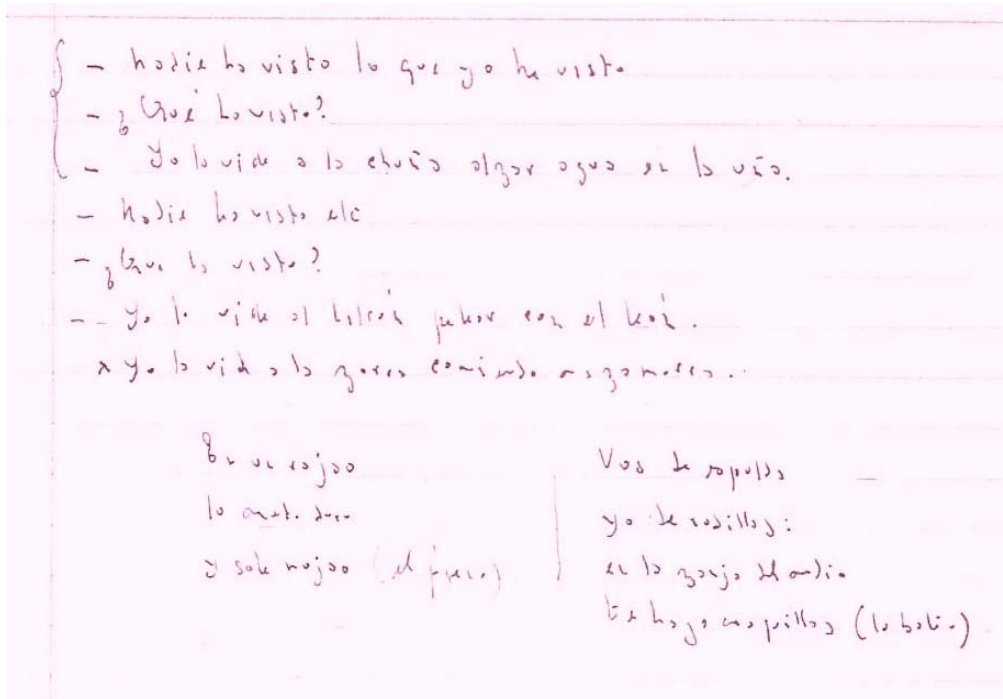 - Nadie ha visto lo que yo he visto
- ¿Qué ha visto?
- Yo la vide a la chuña alzar agua en la uña.
- Nadie ha visto etc
- ¿Que ha visto?
-- Yo lo vide al halcón pelear con el león.
x Yo la vide a la zorra comiendo mazamorra..
En un rajao
lo meto duro
y sale mojao (el freno)
Vos de espalda
yo de rodillas:
en la zanja del medio
te hago cosquillas (la batea)